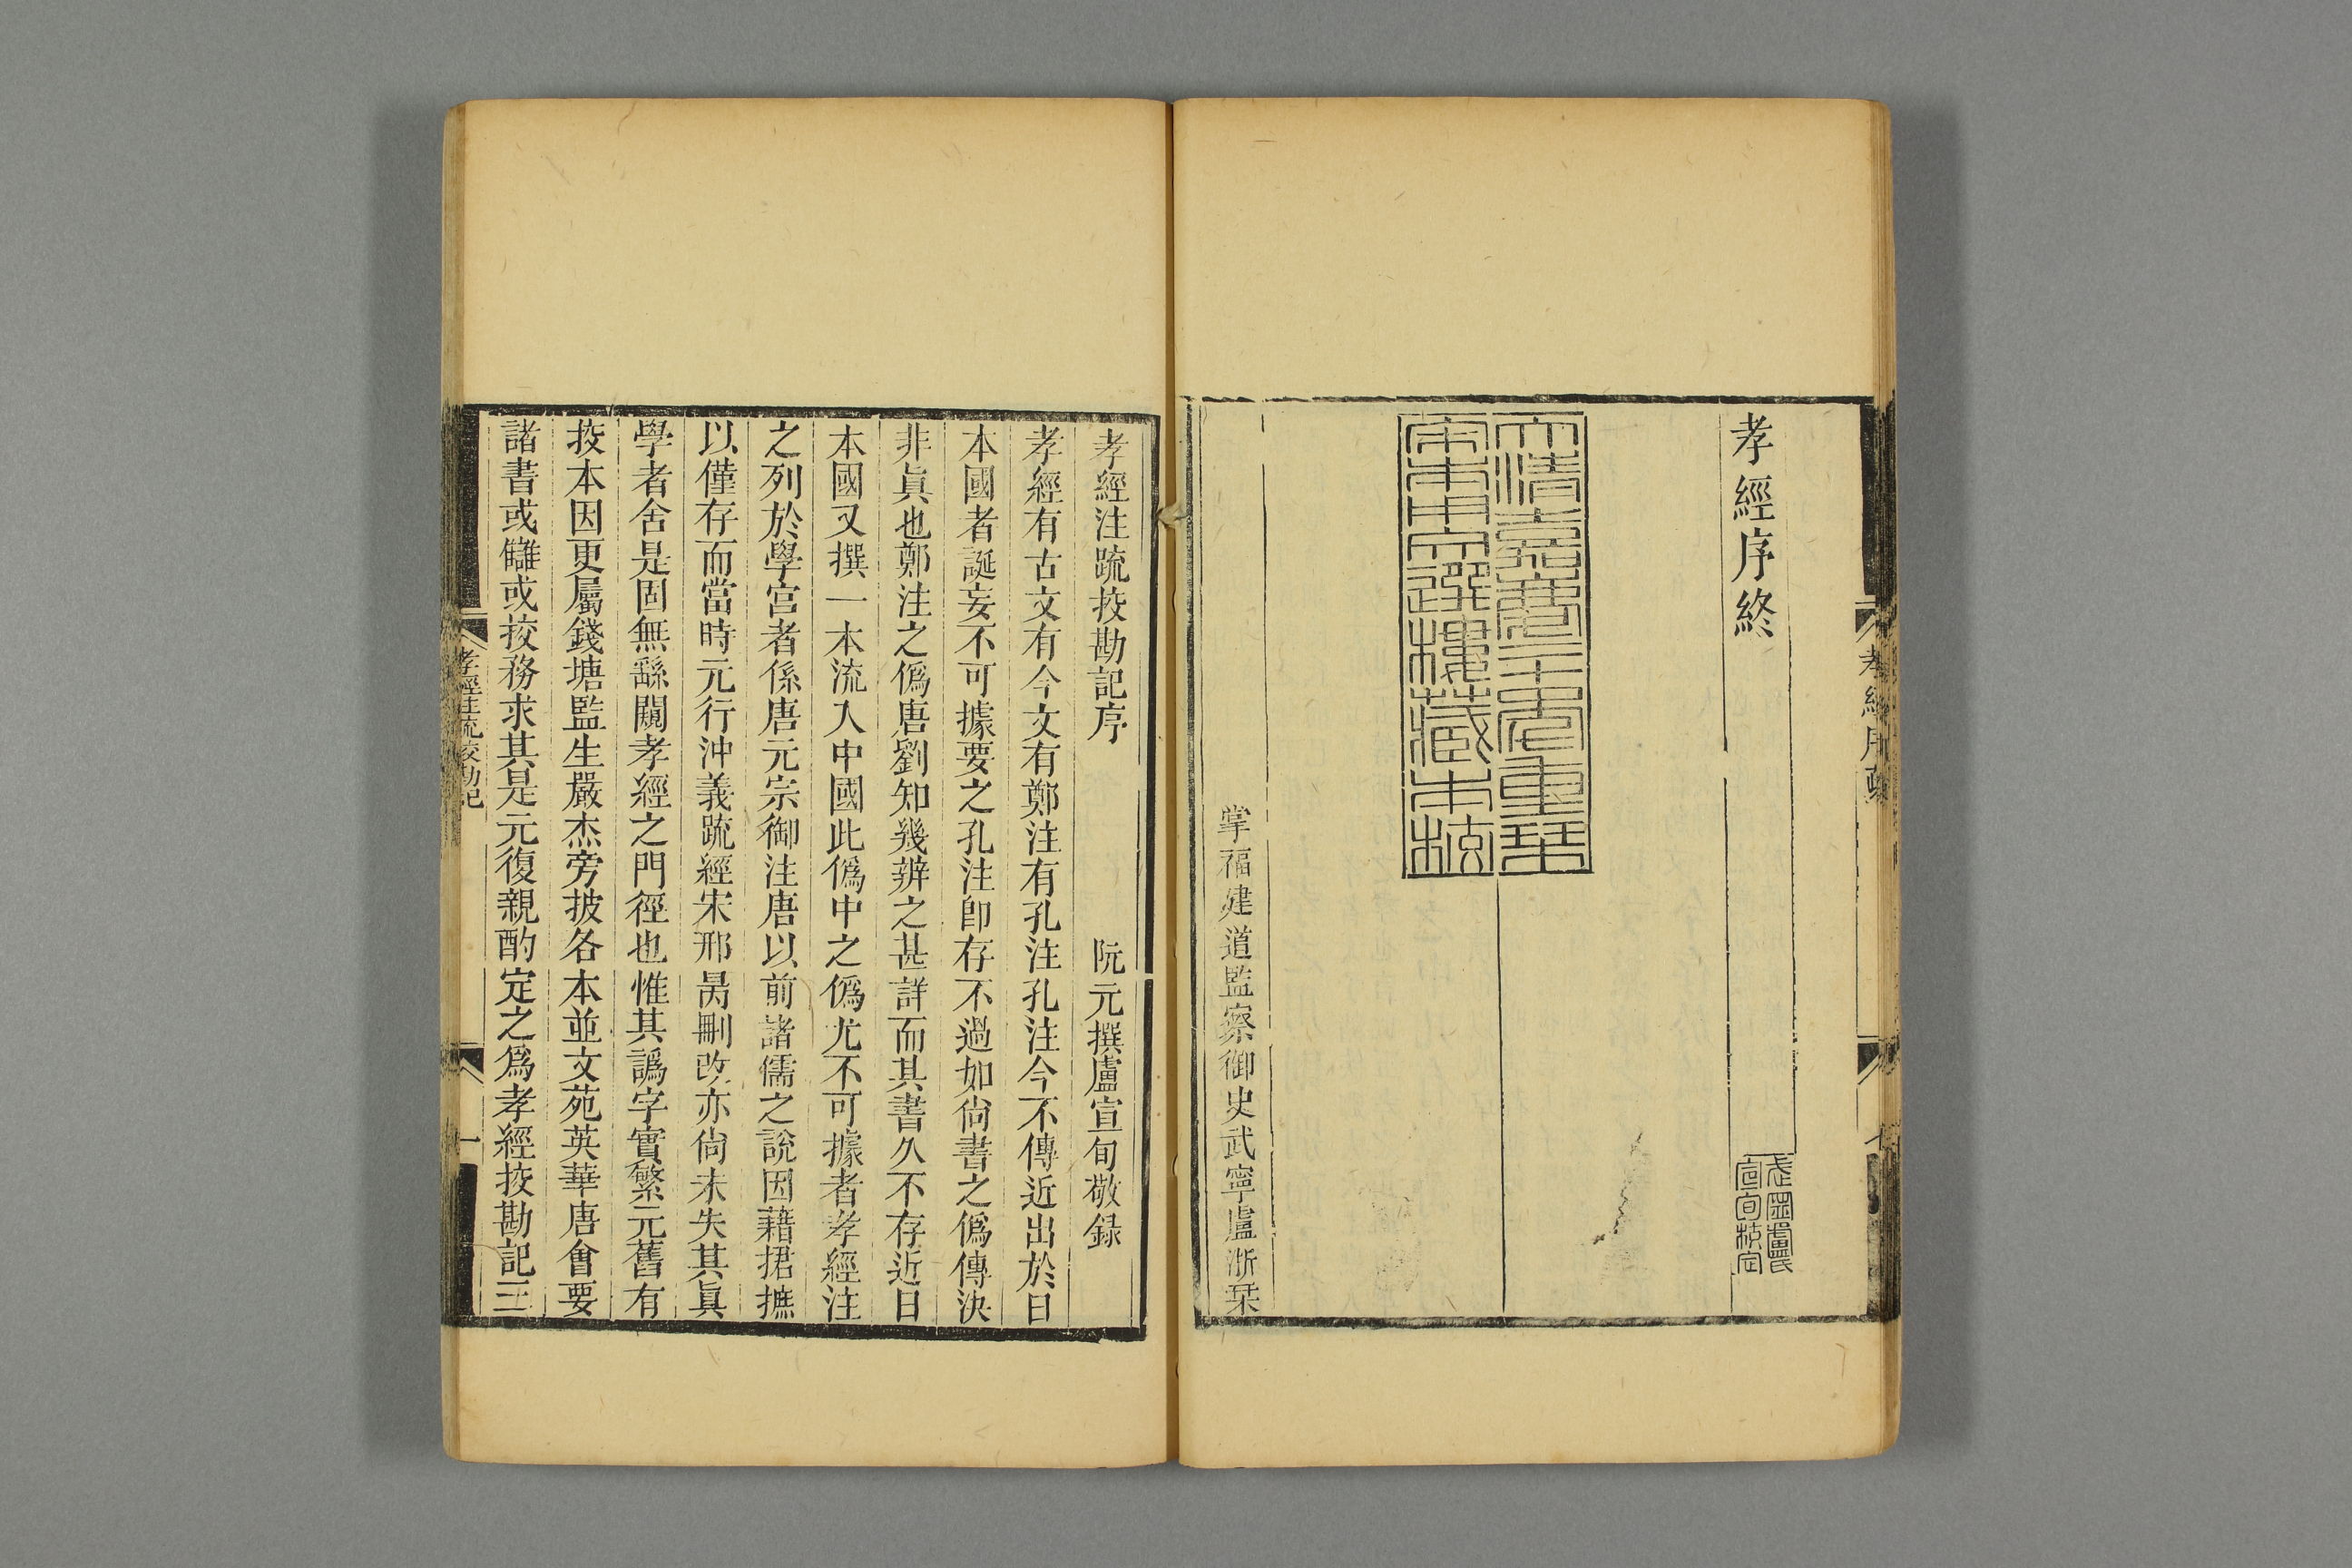 孝經序終
大淸嘉慶二十年重栞
宋本用文選樓藏本校
掌福建道監察御史武寧盧浙栞
孝經注疏挍勘記序
阮元撰盧宣旬敬録
孝經有古文有今文有鄭注有孔注孔注今不傳近出於日
本國者誕妄不可據要之孔注卽存不過如尙書之僞傳決
非眞也鄭注之僞唐劉知幾辨之甚詳而其書久不存近日
本國又撰一本流入中國此僞中之僞尤不可據者孝經注
之列於學官者係唐元宗御注唐以前諸儒之說因藉捃摭
以僅存而當時元行沖義疏經宋邢昺刪改亦尙未失其眞
學者舍是固無繇闚孝經之門徑也惟其譌字實繁元舊有
挍本因更屬錢塘監生嚴杰旁披各本並文苑英華唐會要
諸書或讎或挍務求其是元復親酌定之爲孝經挍勘記三
孝經注疏校勘記
一